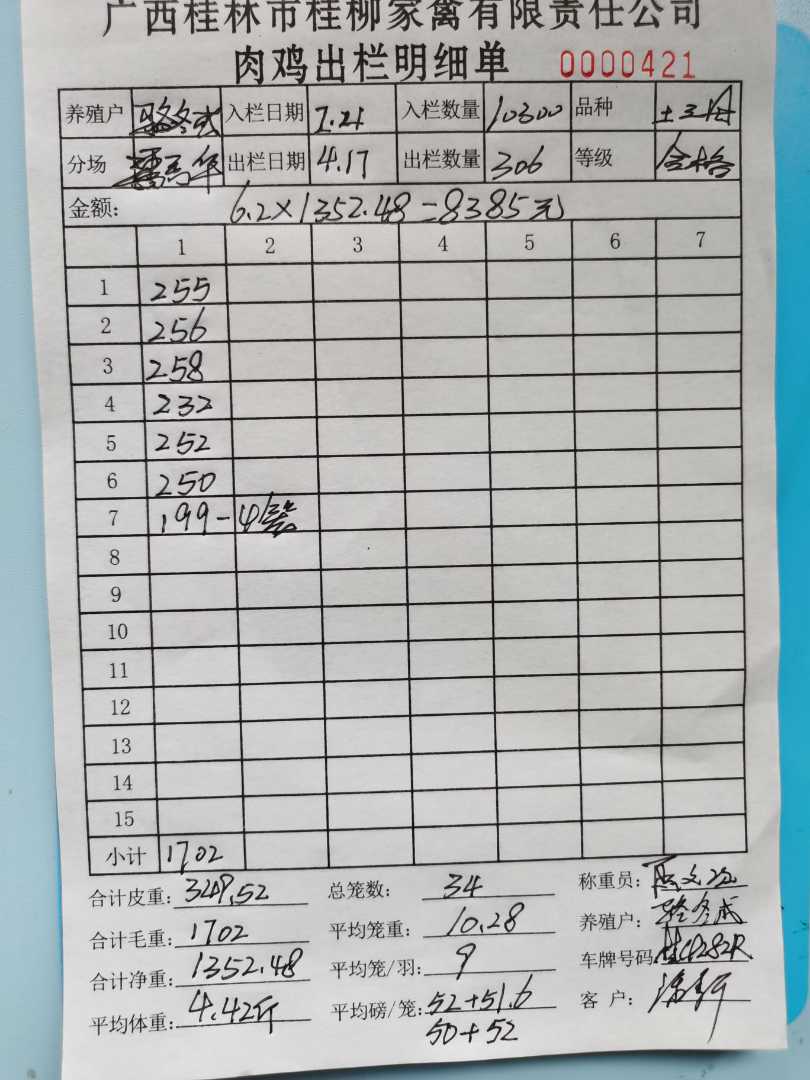 广西桂林市桂柳家禽有限责任公司
肉鸡出栏明细单 0000421
养殖户 骆冬武 入栏日期 入栏数量 10300 品种
分场 出栏日期 4.17 出栏数量 306 等级 合格
金额: 6.2×1352.48=8385元
1 2 3 4 5 6 7
1 255
2 256
3 258
4 232
5 252
6 250
7 199-4笼
8
9
10
11
12
13
14
15
小计 1702
合计皮重: 349.52 总笼数: 34 称重员:
合计毛重: 1702 平均笼重: 10.28 养殖户: 骆冬武
合计净重: 1352.48 平均笼/羽: 9 车牌号码:
平均体重: 4.42斤 平均磅/笼: 52+51.6 客户:
50+52